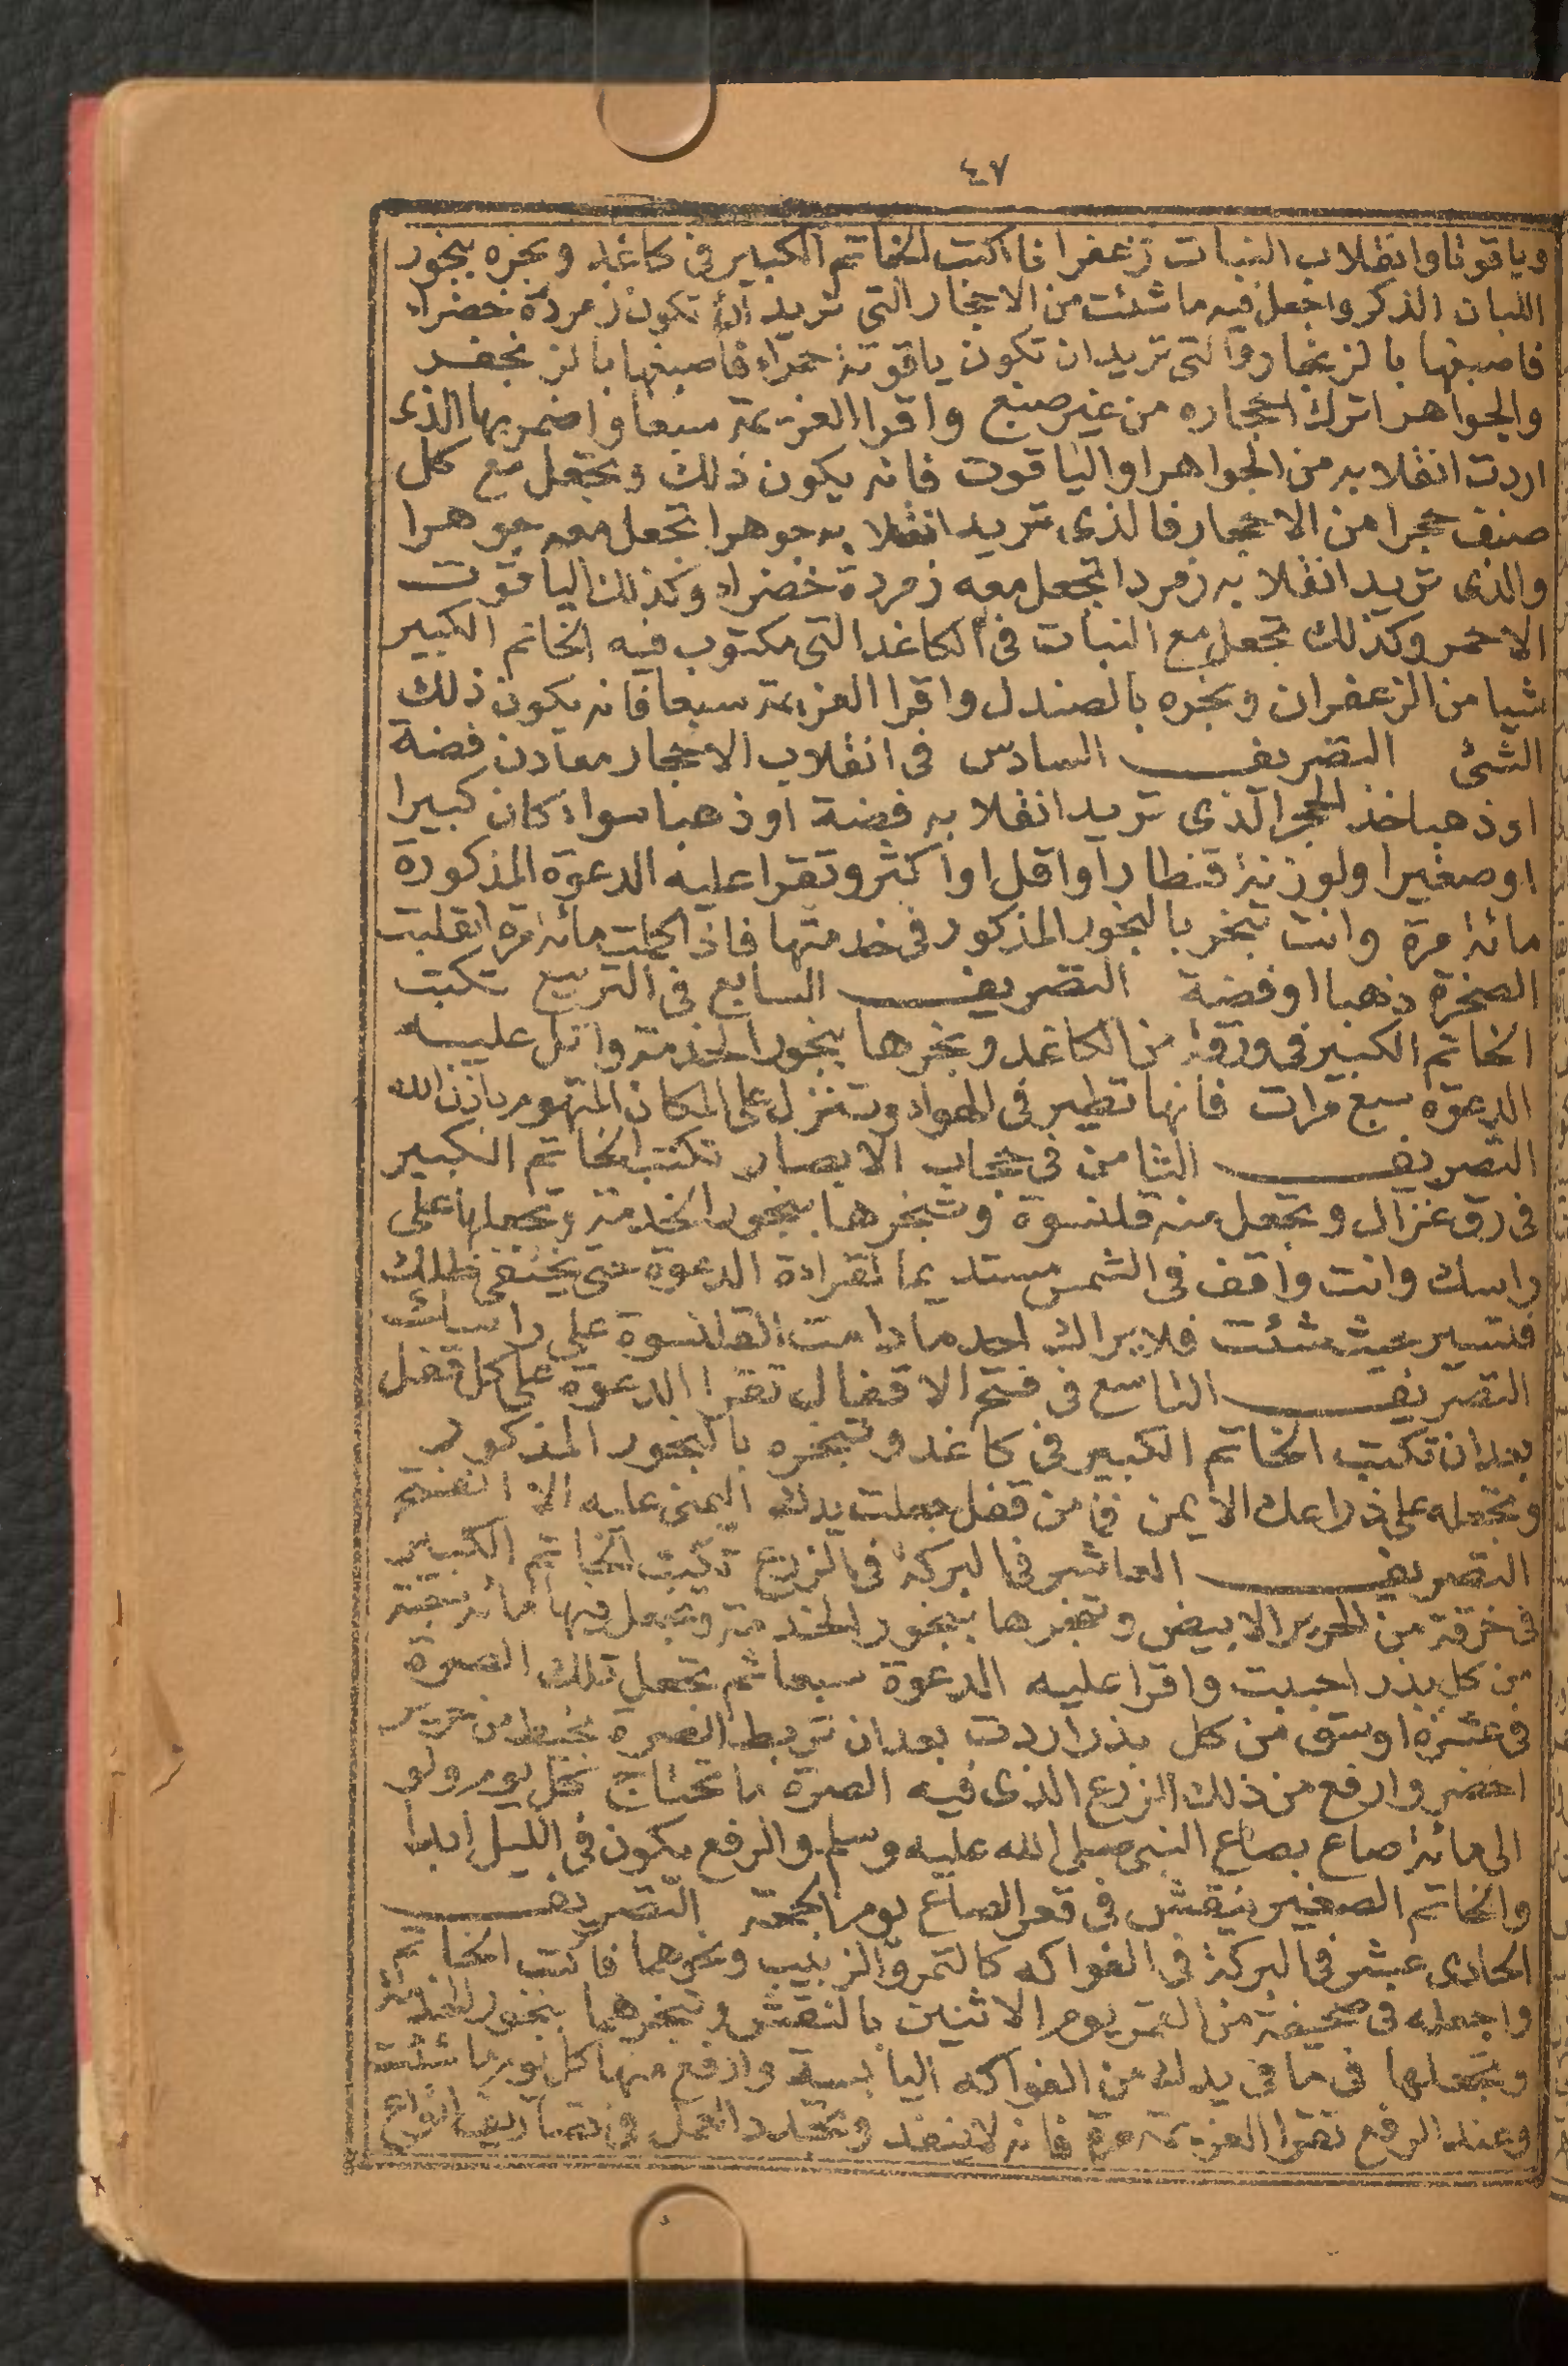 ٤٧
وياقوتا وانقلاب النبات زعفرا فاكتب الخاتم الكبير فى كاغد وبخره ببخور
اللبان الذكر واجعل فيه ما شئت من الاحجار التى تريد أن تكون زمردة خضراء
فاصبغها بالزنجار والتى تريد ان تكون ياقوتة حمراء فاصبغها بالزنجفر
والجواهر اترك احجاره من غير صبغ واقرا العزيمة سبعا واضمر بها الذى
اردت انقلابه من الجواهر او الياقوت فانه يكون ذلك وتجعل مع كل
صنف حجرا من الاحجار فالذى تريد انقلابه جوهرا تجعل معه جوهرا
والذى تريد انقلابه زمردا تجعل معه زمردة خضراء وكذلك الياقوت
الاحمر وكذلك تجعل مع النبات فى الكاغد التى مكتوب فيه الخاتم الكبير
شيا من الزعفران وبخره بالصندل واقرا العزيمة سبعا فانه يكون ذلك
الشئ التصريف السادس فى انقلاب الاحجار معادن فضة
او ذهبا خذ الحجر الذى تريد انقلابه فضة او ذهبا سواء كان كبيرا
او صغيرا ولو زنة قنطار او اقل او اكثر وتقرا عليه الدعوة المذكورة
مائة مرة وانت تبخر بالبخور المذكور فى خدمتها فاذا كملت مائة مرة انقلبت
الصخرة ذهبا او فضة التصريف السابع فى التربيع تكتب
الخاتم الكبير فى ورقة من الكاغد وبخرها ببخور الخدمة واتل عليه
الدعوة سبع مرات فانها تطير فى الهواء وتنزل على المكان المتهوم باذن الله
التصريف الثامن فى حجاب الابصار تكتب الخاتم الكبير
فى رق غزال وتجعل منه قلنسوة وتبخرها ببخور الخدمة وتجعلها على
راسك وانت واقف فى الشمس مستديما لقراءة الدعوة حتى يختفى ظلك
فتسير حيث شئت فلا يراك احد ما دامت القلنسوة على راسك
التصريف التاسع فى فتح الاقفال تقرا الدعوة على كل قفل
بعد ان تكتب الخاتم الكبير فى كاغد وتبخره بالبخور المذكور
وتجعله على ذراعك الايمن فما من قفل جعلت يدك اليمنى عليه الا انفتح
التصريف العاشر فى البركة فى الزرع تكتب الخاتم الكبير
فى خرقة من الحرير الابيض وتبخرها ببخور الخدمة وتجعل فيها مائة حبة
من كل بذر احببت واقرا عليه الدعوة سبعا ثم تجعل تلك الصرة
فى عشرة اوسق من كل بذر اردت بعد ان تربط الصرة بخيط من حرير
اخضر وارفع من ذلك الزرع الذى فيه الصرة ما تحتاج كل يوم ولو
الى مائة صاع بصاع النبى صلى الله عليه وسلم والرفع يكون فى الليل ابدا
والخاتم الصغير ينقش فى قعر الصاع يوم الجمعة التصريف
الحادى عشر فى البركة فى الفواكه كالتمر والزبيب ونحوهما فاكتب الخاتم
واجعله فى صحيفة من القمر يوم الاثنين بالنقش وتبخرها ببخور الخدمة
وتجعلها فى ما فى يدك من الفواكه اليابسة وارفع منها كل يوم ما شئت
وعند الرفع تقرا العزيمة مرة فانه لا ينفد وتجدد العمل فى تصاريف انواع